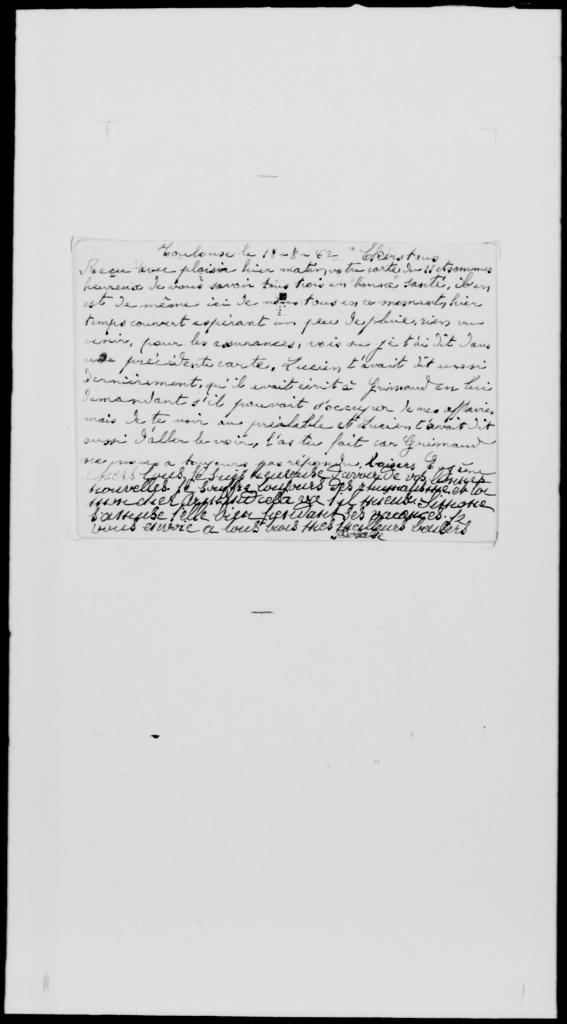 Toulouse le 18-8-42 Chers tous
Reçu avec plaisir hier matin votre carte du 11 et sommes
heureux de vous savoir tous trois en bonne santé, il en
est de même ici de nous tous en ce moment, hier
temps couvert espérant un peu de pluie, rien vu
venir, pour les assurances, vois ou je t'ai dit dans
une précédente carte. Lucien t'avait dit aussi
dernièrement, qu'il avait écrit à Grimaud en lui
demandant s'il pouvait s'occuper de mes affaires
mais de te voir au préalable et Lucien t'avait dit
aussi d'aller le voir, l'as tu fait car Grimaud
ne nous a toujours pas répondu, baisers
Chers tous, je suis heureuse d'avoir de vos bonnes
nouvelles. Je souffre toujours des rhumatisme et toi
mon cher cela va t'il mieux. Simone
s'amuse t'elle bien pendant ses vacances. Je
vous envoie a tous trois mes meilleurs baisers